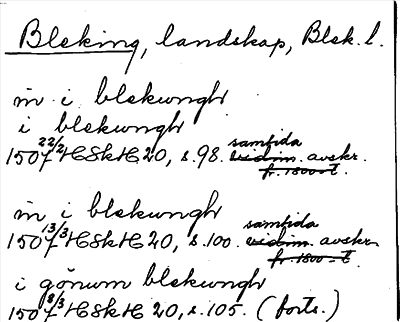 Bleking, landskap, Blek. l.
in i blekungh
i blekungh
1507 22/2 HSkH 20, s. 98. samtida vidim. avskr.
fr. 1800-t.
in i blekungh
1507 13/3 HSkH 20, s. 100. samtida vidim. avskr.
fr. 1800-t.
i gönum blekungh
1507 8/3 HSkH 20, s. 105. (forts.)